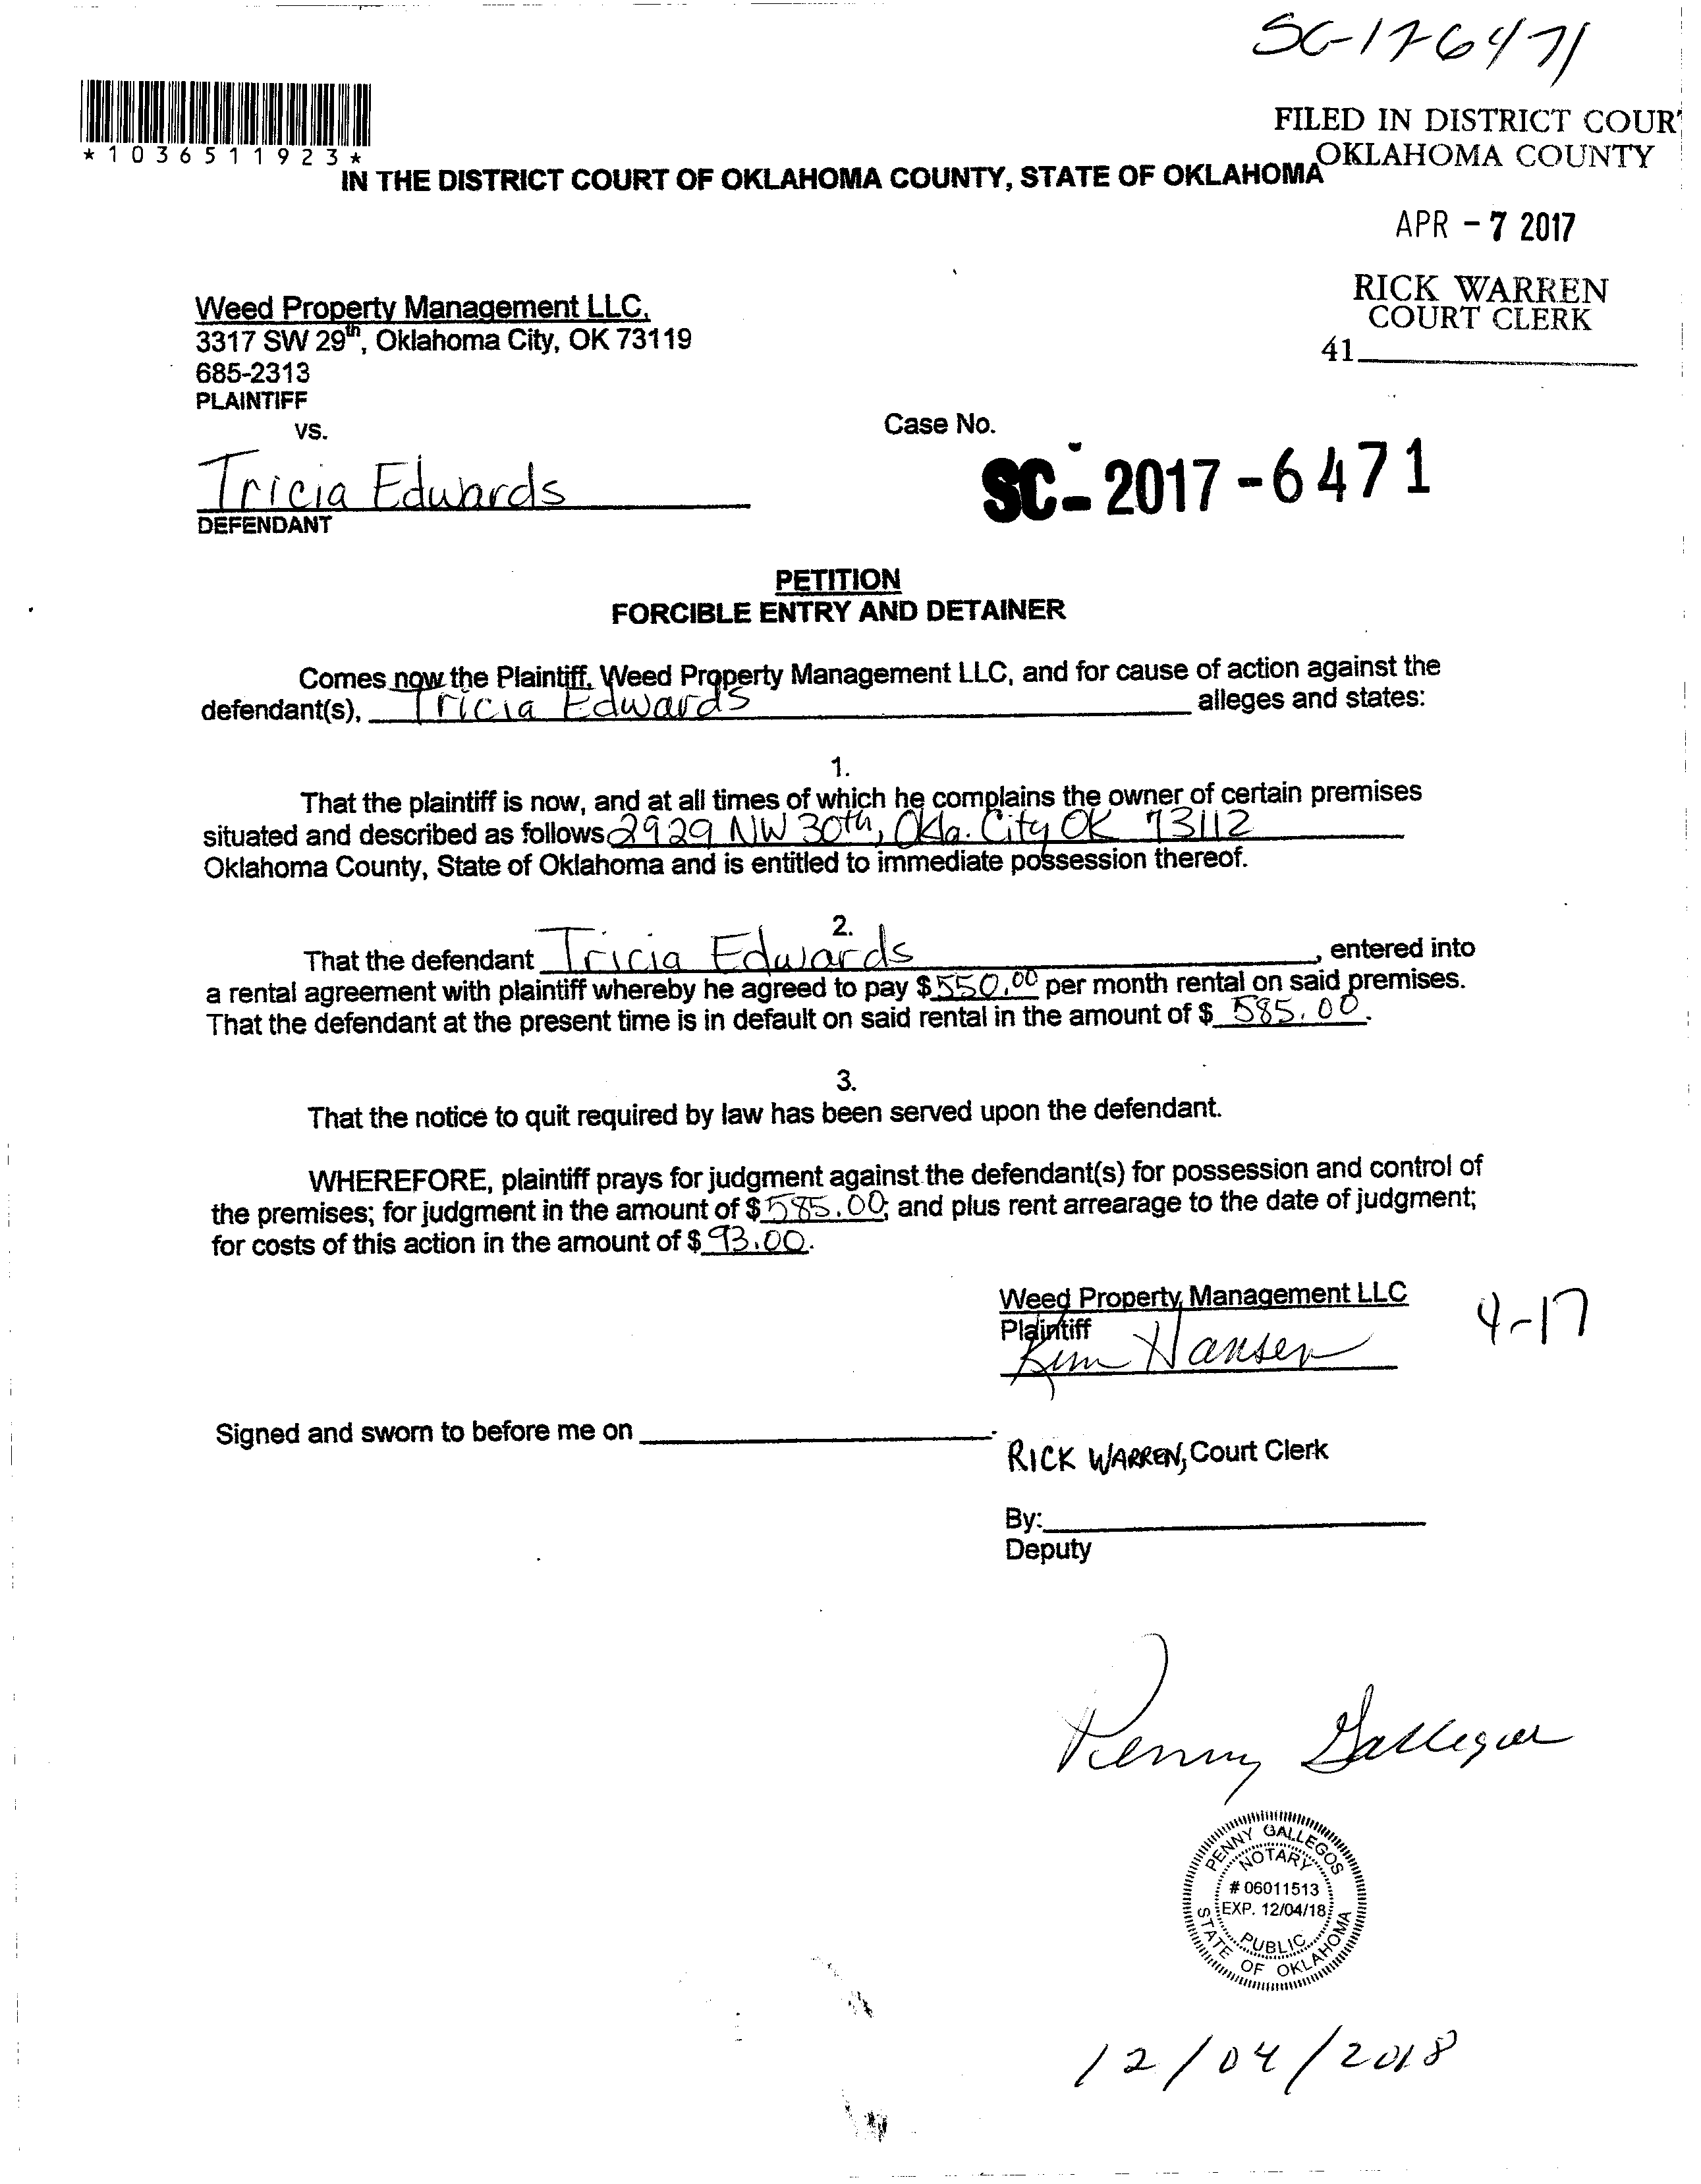 SC-17-6471
FILED IN DISTRICT COURT
OKLAHOMA COUNTY
*1036511923*
IN THE DISTRICT COURT OF OKLAHOMA COUNTY, STATE OF OKLAHOMA
APR - 7 2017
RICK WARREN
COURT CLERK
41
Weed Property Management LLC,
3317 SW 29th, Oklahoma City, OK 73119
685-2313
PLAINTIFF
vs.
Case No.
Tricia Edwards
SC- 2017 - 6471
DEFENDANT
PETITION
FORCIBLE ENTRY AND DETAINER
Comes now the Plaintiff, Weed Property Management LLC, and for cause of action against the
defendant(s), Tricia Edwards alleges and states:
1.
That the plaintiff is now, and at all times of which he complains the owner of certain premises
situated and described as follows 2929 NW 30th, Okla. City OK 73112
Oklahoma County, State of Oklahoma and is entitled to immediate possession thereof.
2.
That the defendant Tricia Edwards, entered into
a rental agreement with plaintiff whereby he agreed to pay $550.00 per month rental on said premises.
That the defendant at the present time is in default on said rental in the amount of $ 585.00.
3.
That the notice to quit required by law has been served upon the defendant.
WHEREFORE, plaintiff prays for judgment against the defendant(s) for possession and control of
the premises; for judgment in the amount of $585.00; and plus rent arrearage to the date of judgment;
for costs of this action in the amount of $ 93.00.
Weed Property Management LLC
4-17
Plaintiff
Kim Hansen
Signed and sworn to before me on
RICK WARREN, Court Clerk
By:
Deputy
Penny Gallegos
PENNY GALLEGOS
NOTARY
# 06011513
EXP. 12/04/18
PUBLIC
STATE OF OKLAHOMA
12/04/2018